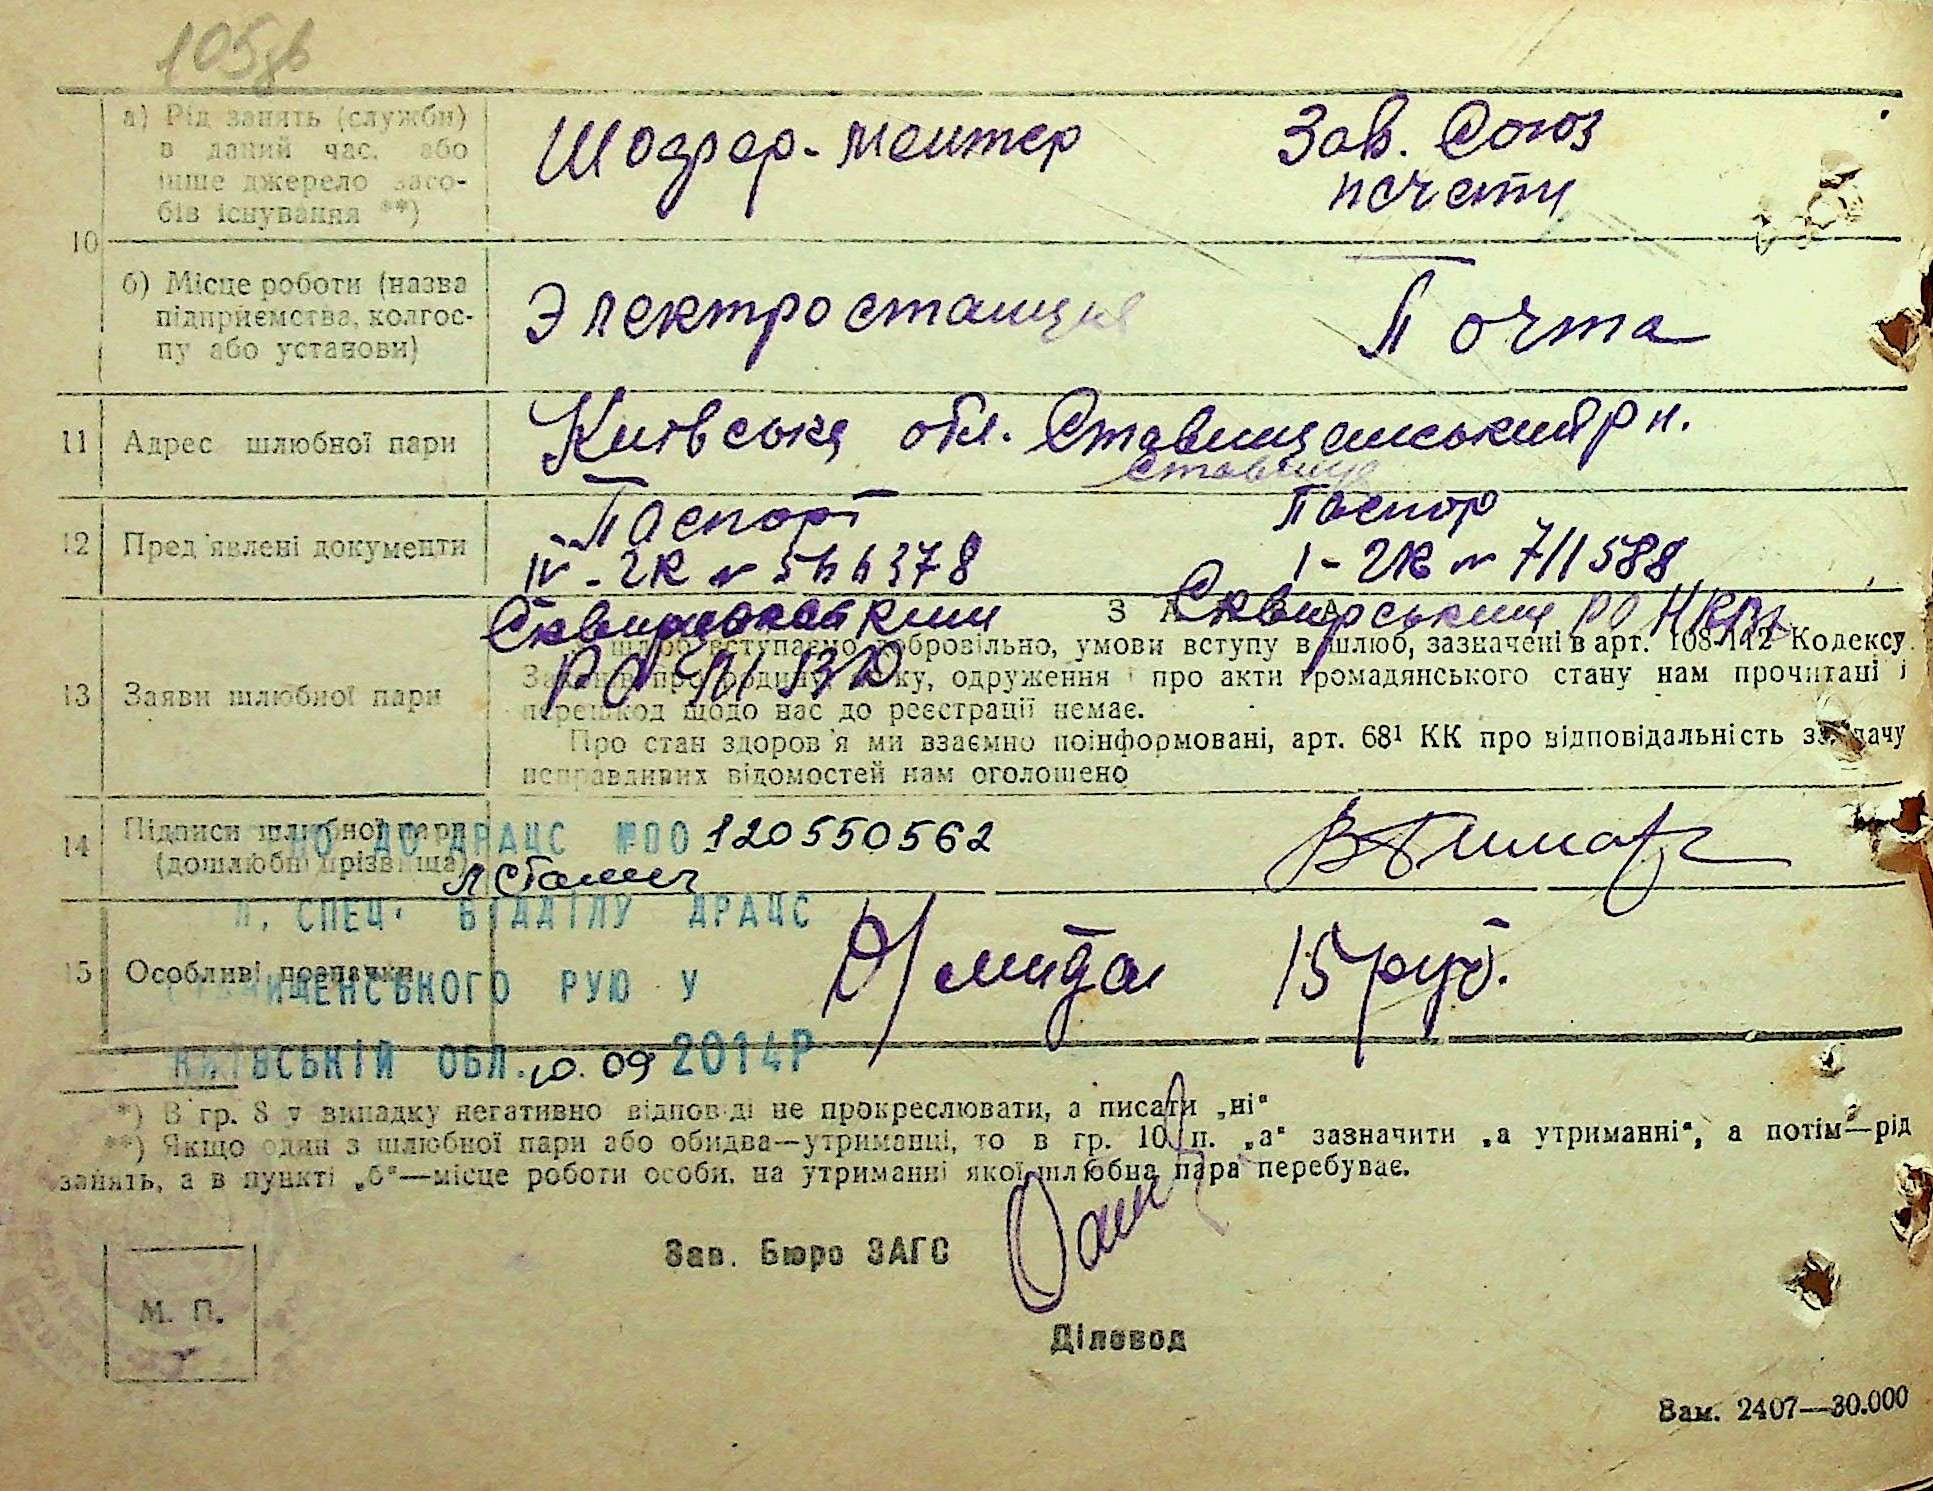 105
а) Рід занять (служби) в даний час, або інше джерело засобів існування **)
Шофер-монтер
Зав. Союз
печати
10
б) Місце роботи (назва підприємства, колгоспу або установи)
Электростанция
Почта
11 Адрес шлюбної пари
Київська обл. Ставищанський р н.
Ставище
12 Пред'явлені документи
Паспорт
Паспор
IV-2К № 566378
I-2К № 711588
Сквирський РО НКВД
РО НКВД
13 Заяви шлюбної пари
У шлюб вступаємо добровільно, умови вступу в шлюб, зазначені в арт. 108-112 Кодексу
Законів про родину, опіку, одруження і про акти громадянського стану нам прочитані і
перешкод щодо нас до реєстрації немає.
Про стан здоров'я ми взаємно поінформовані, арт. 68¹ КК про відповідальність за дачу
неправдивих відомостей нам оголошено
14 Підписи шлюбної пари
(дошлюбні прізвища)
НО ДО ДРАЦС №00120550562
Л. СПЕЦ. ВІДДІЛУ ДРАЦС
15 Особливі позначки
СТАВИЩЕНСЬКОГО РУЮ У
15 руб.
КИЇВСЬКІЙ ОБЛ. 10.09 2014Р
*) В гр. 8 у випадку негативно відповіді не прокреслювати, а писати „ні“
**) Якщо один з шлюбної пари або обидва—утриманці, то в гр. 10 п. „а“ зазначити „а утриманні“, а потім—рід
занять, а в пункті „б“—місце роботи особи, на утриманні якої шлюбна пара перебуває.
Зав. Бюро ЗАГС
М. П.
Діловод
Зам. 2407—30.000